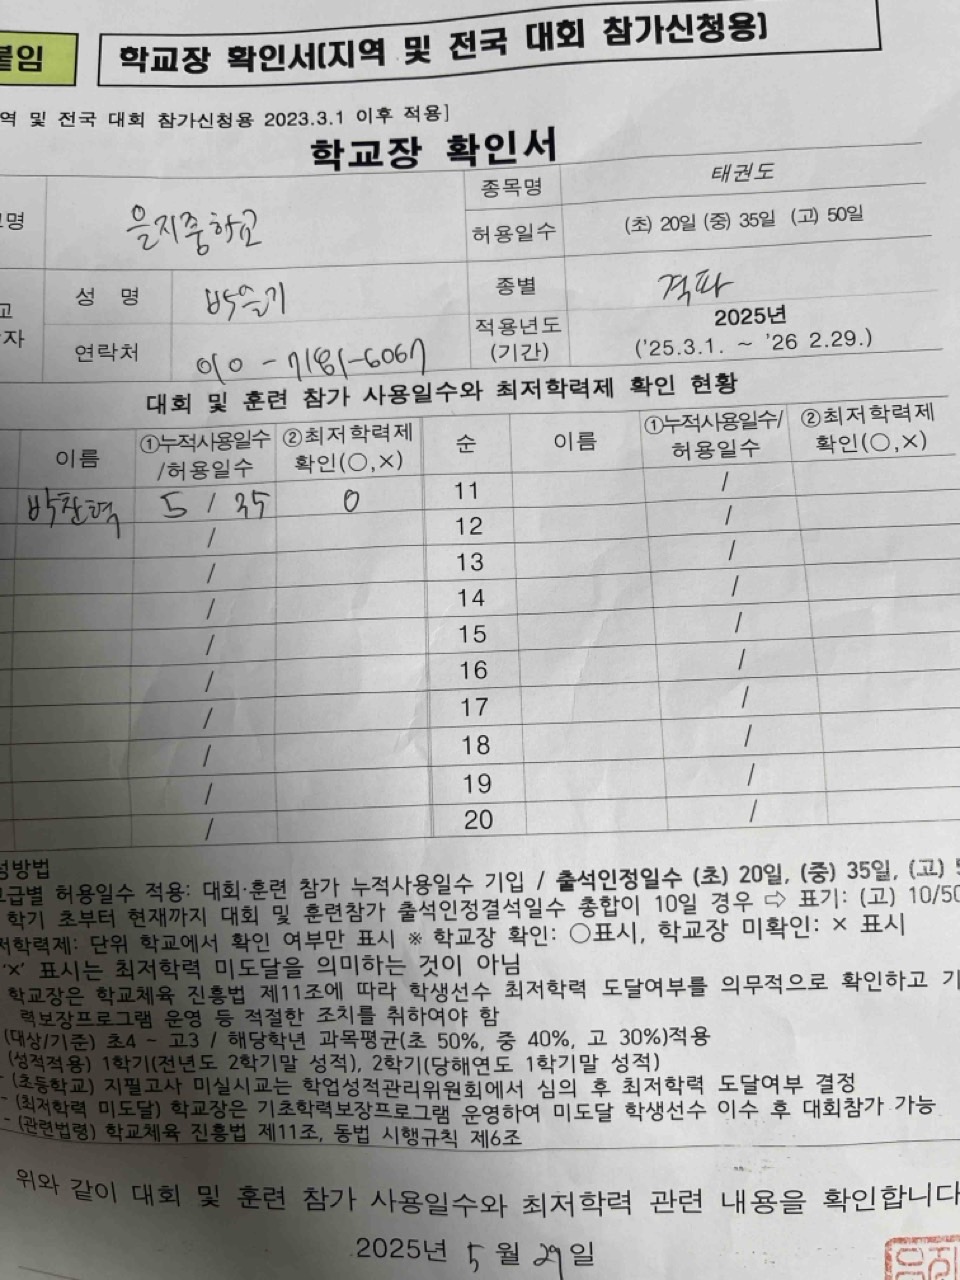 붙임
학교장 확인서[지역 및 전국 대회 참가신청용]
역 및 전국 대회 참가신청용 2023.3.1 이후 적용]
학교장 확인서
명 을지중학교 종목명 태권도
허용일수 (초) 20일 (중) 35일 (고) 50일
교 성 명 박슬기 종별 격파
자 연락처 010-7181-6067 적용년도 (기간) 2025년 ('25.3.1. ~ '26 2.29.)
대회 및 훈련 참가 사용일수와 최저학력제 확인 현황
이름 ①누적사용일수/허용일수 ②최저학력제 확인(○,×) 순 이름 ①누적사용일수/허용일수 ②최저학력제 확인(○,×)
박찬혁 5 / 35 0 11 /
/ 12 /
/ 13 /
/ 14 /
/ 15 /
/ 16 /
/ 17 /
/ 18 /
/ 19 /
/ 20 /
성방법
급별 허용일수 적용: 대회·훈련 참가 누적사용일수 기입 / 출석인정일수 (초) 20일, (중) 35일, (고) 5
학기 초부터 현재까지 대회 및 훈련참가 출석인정결석일수 총합이 10일 경우 ⇨ 표기: (고) 10/50
저학력제: 단위 학교에서 확인 여부만 표시 ※ 학교장 확인: ○표시, 학교장 미확인: × 표시
'×' 표시는 최저학력 미도달을 의미하는 것이 아님
학교장은 학교체육 진흥법 제11조에 따라 학생선수 최저학력 도달여부를 의무적으로 확인하고 기
력보장프로그램 운영 등 적절한 조치를 취하여야 함
(대상/기준) 초4 ~ 고3 / 해당학년 과목평균(초 50%, 중 40%, 고 30%)적용
(성적적용) 1학기(전년도 2학기말 성적), 2학기(당해연도 1학기말 성적)
- (초등학교) 지필고사 미실시교는 학업성적관리위원회에서 심의 후 최저학력 도달여부 결정
- (최저학력 미도달) 학교장은 기초학력보장프로그램 운영하여 미도달 학생선수 이수 후 대회참가 가능
- (관련법령) 학교체육 진흥법 제11조, 동법 시행규칙 제6조
위와 같이 대회 및 훈련 참가 사용일수와 최저학력 관련 내용을 확인합니다
2025년 5월 29일